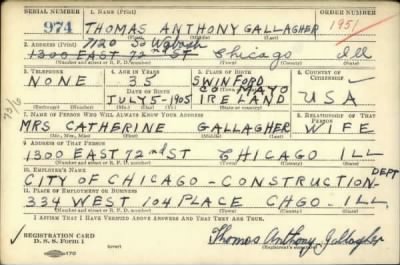 SERIAL NUMBER 1. NAME (Print) ORDER NUMBER
974 THOMAS ANTHONY GALLAGHER 1951
2. ADDRESS (Print) 7120 So Wabash
1300 EAST 72nd ST Chicago Ill
3. TELEPHONE 4. AGE IN YEARS 5. PLACE OF BIRTH 6. COUNTRY OF CITIZENSHIP
NONE 35 SWINFORD
DATE OF BIRTH CO MAYO
JULY 5-1905 IRELAND USA
7. NAME OF PERSON WHO WILL ALWAYS KNOW YOUR ADDRESS 8. RELATIONSHIP OF THAT PERSON
MRS CATHERINE GALLAGHER WIFE
(Mr., Mrs., Miss) (First) (Middle) (Last)
9. ADDRESS OF THAT PERSON
1300 EAST 72nd ST CHICAGO ILL
(Number and street or R. F. D. number) (Town) (County) (State)
10. EMPLOYER'S NAME
CITY OF CHICAGO - CONSTRUCTION DEPT
11. PLACE OF EMPLOYMENT OR BUSINESS
334 WEST 104 PLACE CHGO - ILL
(Number and street or R. F. D. number) (Town) (County) (State)
I AFFIRM THAT I HAVE VERIFIED ABOVE ANSWERS AND THAT THEY ARE TRUE.
REGISTRATION CARD
D. S. S. Form 1 (over) Thomas Anthony Gallagher
(Registrant's signature)